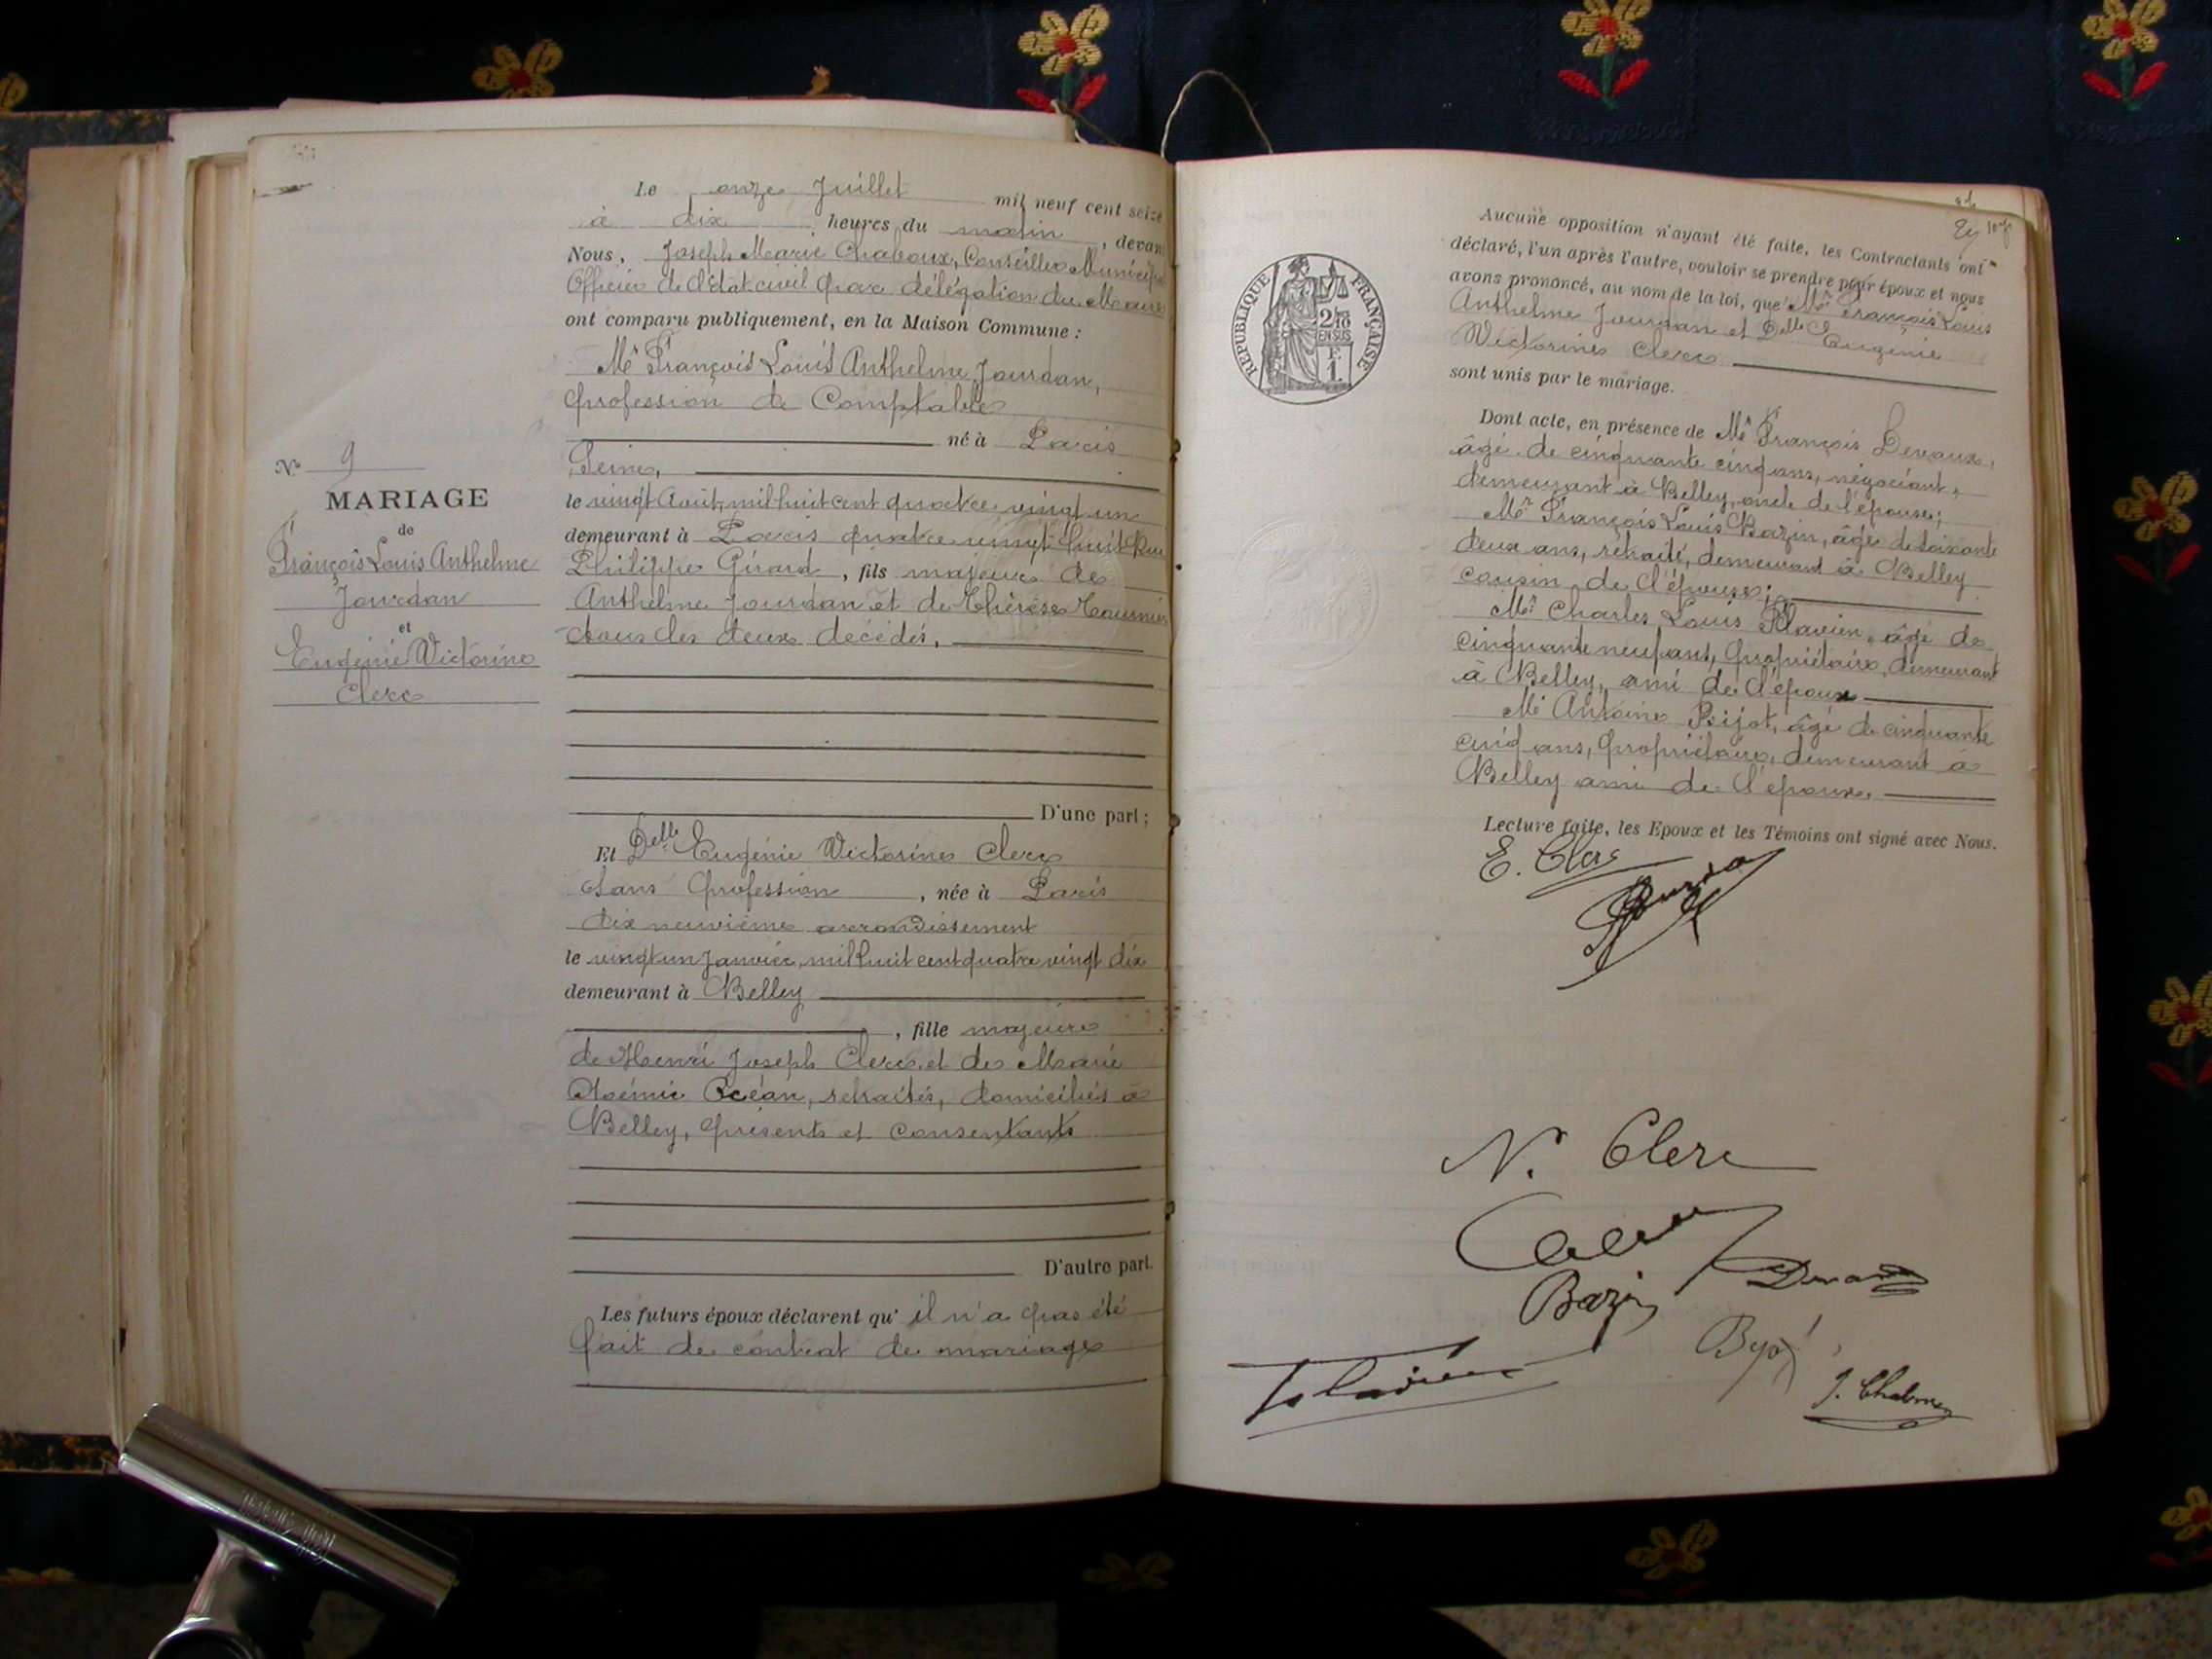 Le onze Juillet mil neuf cent seize
à dix heures du matin, devant
Nous, Joseph Marie Chaboux, Conseiller Municipal
Officier de l'Etat civil par délégation du Maire
ont comparu publiquement, en la Maison Commune :
Mr François Louis Anthelme Jourdan,
profession de Comptable
né à Paris
Seine,
le vingt Août, mil huit cent quatre vingt un
demeurant à Paris quatre vingt huit Rue
Philippe Girard, fils majeur de
Anthelme Jourdan et de Thérèse
tous les deux décédés.
D'une part ;
Et Delle Eugénie Victorine Clerc
sans profession, née à Paris
dix neuvième arrondissement
le vingt un Janvier, mil huit cent quatre vingt dix
demeurant à Belley
, fille majeure
de Henri Joseph Clerc et de Marie
Noémie Océan, retraités, domiciliés à
Belley, présents et consentants
D'autre part.
Les futurs époux déclarent qu' il n'a pas été
fait de contrat de mariage
No 9
MARIAGE
de
François Louis Anthelme
Jourdan
et
Eugénie Victorine
Clerc
REPUBLIQUE FRANÇAISE
2/10
EN SUS
F.
1.
Aucune opposition n'ayant été faite, les Contractants ont
déclaré, l'un après l'autre, vouloir se prendre pour époux et nous
avons prononcé, au nom de la loi, que Mr François Louis
Anthelme Jourdan et Delle Eugénie
Victorine Clerc
sont unis par le mariage.
Dont acte, en présence de Mr François Devaux,
âgé de cinquante cinq ans, négociant,
demeurant à Belley, oncle de l'épouse ;
Mr François Louis Bazin, âgé de soixante
deux ans, retraité, demeurant à Belley
cousin de l'épouse ;
Mr Charles Louis Flavien, âgé de
cinquante neuf ans, propriétaire, demeurant
à Belley, ami de l'époux
Mr Antoine Bijot, âgé de cinquante
cinq ans, propriétaire, demeurant à
Belley ami de l'époux.
Lecture faite, les Epoux et les Témoins ont signé avec Nous.
E. Clerc
N. Clerc
Bazin